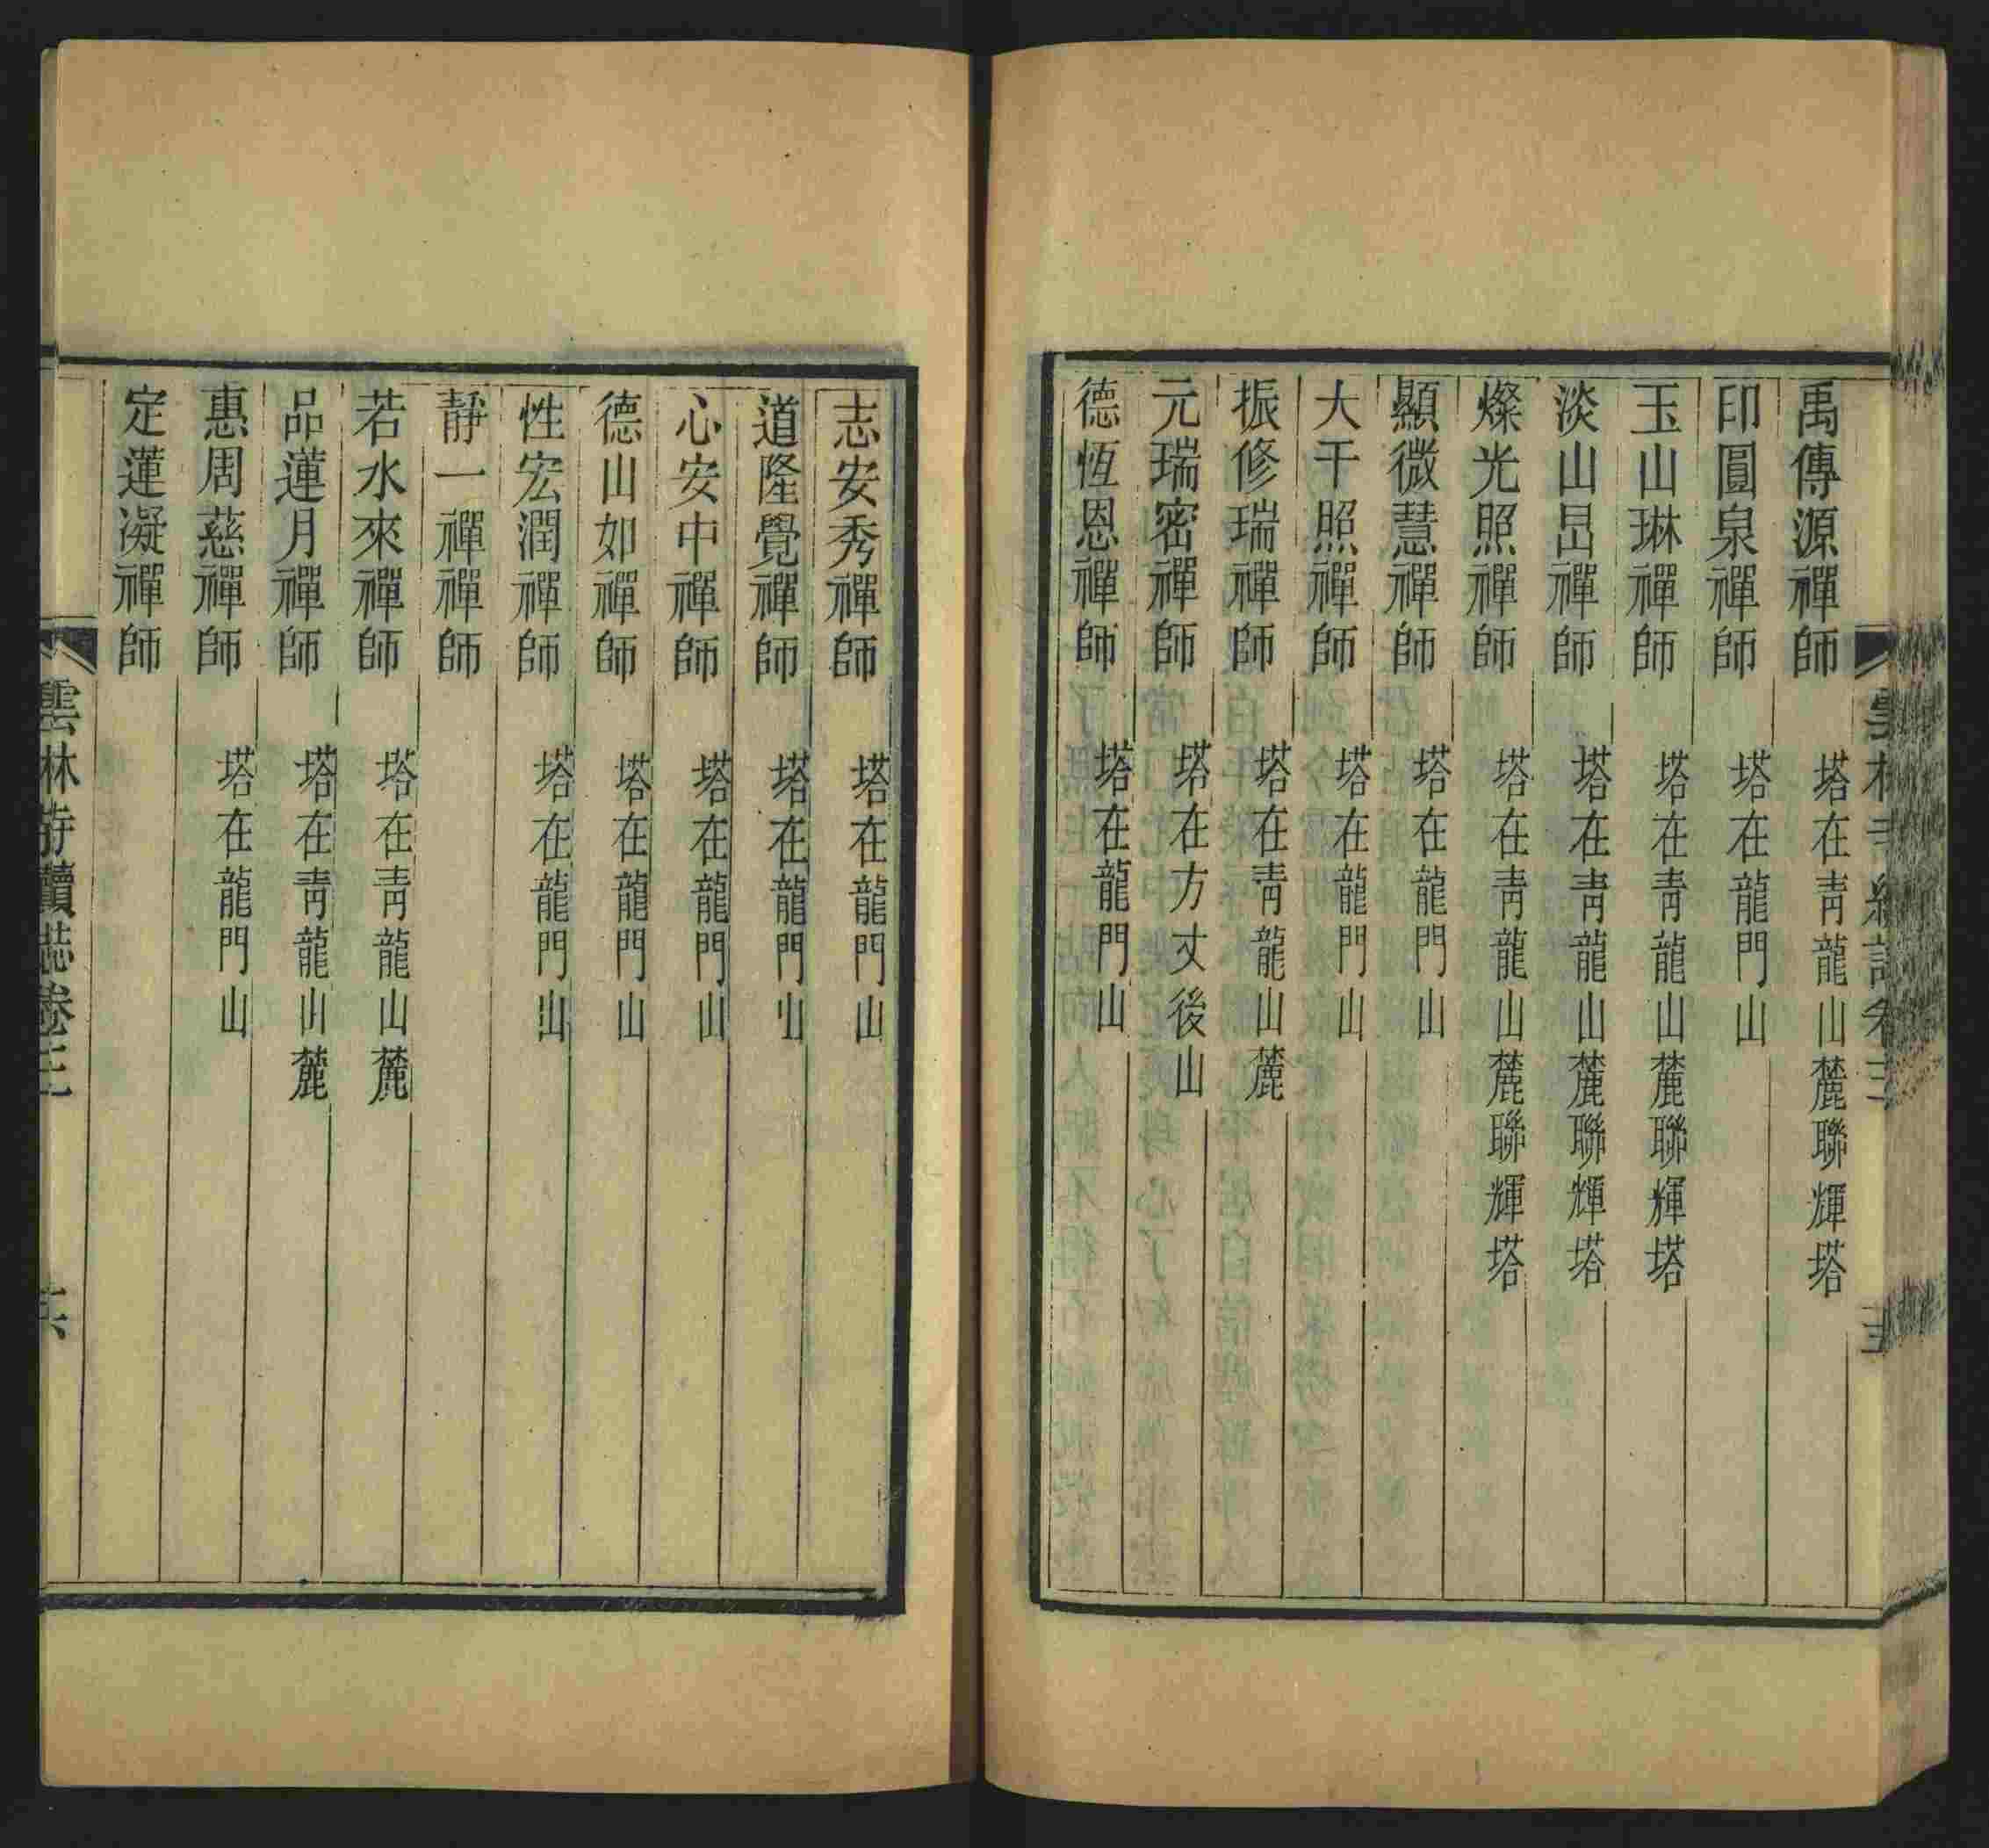 禹傳源禪師 塔在青龍山麓聯輝塔
印圓泉禪師 塔在龍門山
玉山琳禪師 塔在青龍山麓聯輝塔
淡山昌禪師 塔在青龍山麓聯輝塔
燦光照禪師 塔在青龍山麓聯輝塔
顯微慧禪師 塔在龍門山
大千照禪師 塔在龍門山
振修瑞禪師 塔在青龍山麓
元瑞密禪師 塔在方丈後山
德恆恩禪師 塔在龍門山
志安秀禪師 塔在龍門山
道隆覺禪師 塔在龍門山
心安中禪師 塔在龍門山
德山如禪師 塔在龍門山
性宏潤禪師 塔在龍門山
靜一禪禪師
若水來禪師 塔在青龍山麓
品蓮月禪師 塔在青龍山麓
惠周慈禪師 塔在龍門山
定蓮凝禪師
雲林寺續誌卷三